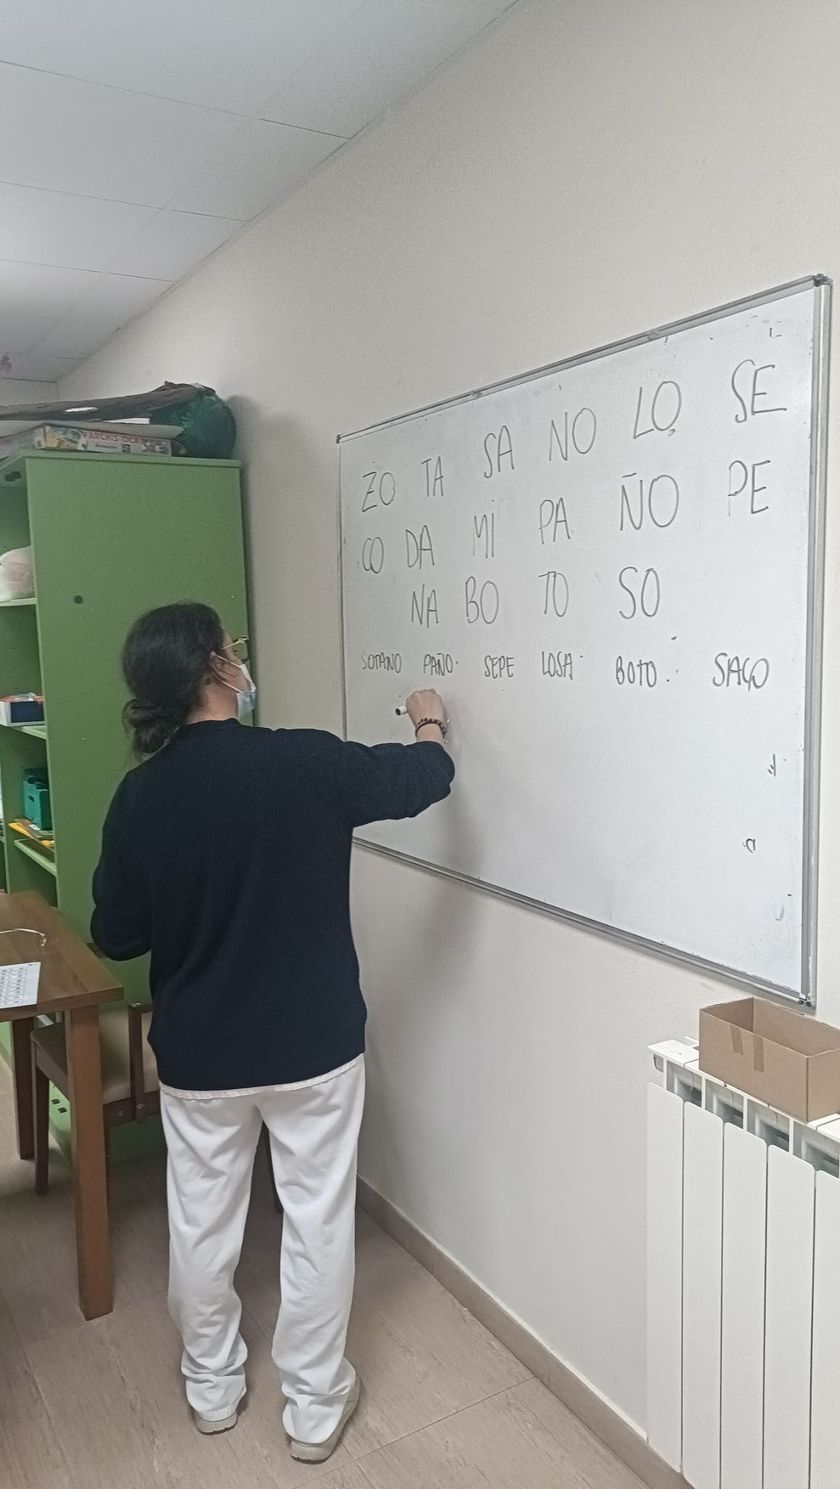 ZO TA SA NO LO SE
CO DA MI PA ÑO PE
NA BO TO SO
SOTANO PAÑO SEPE LOSA BOTO SACO
PARCHIS OCA